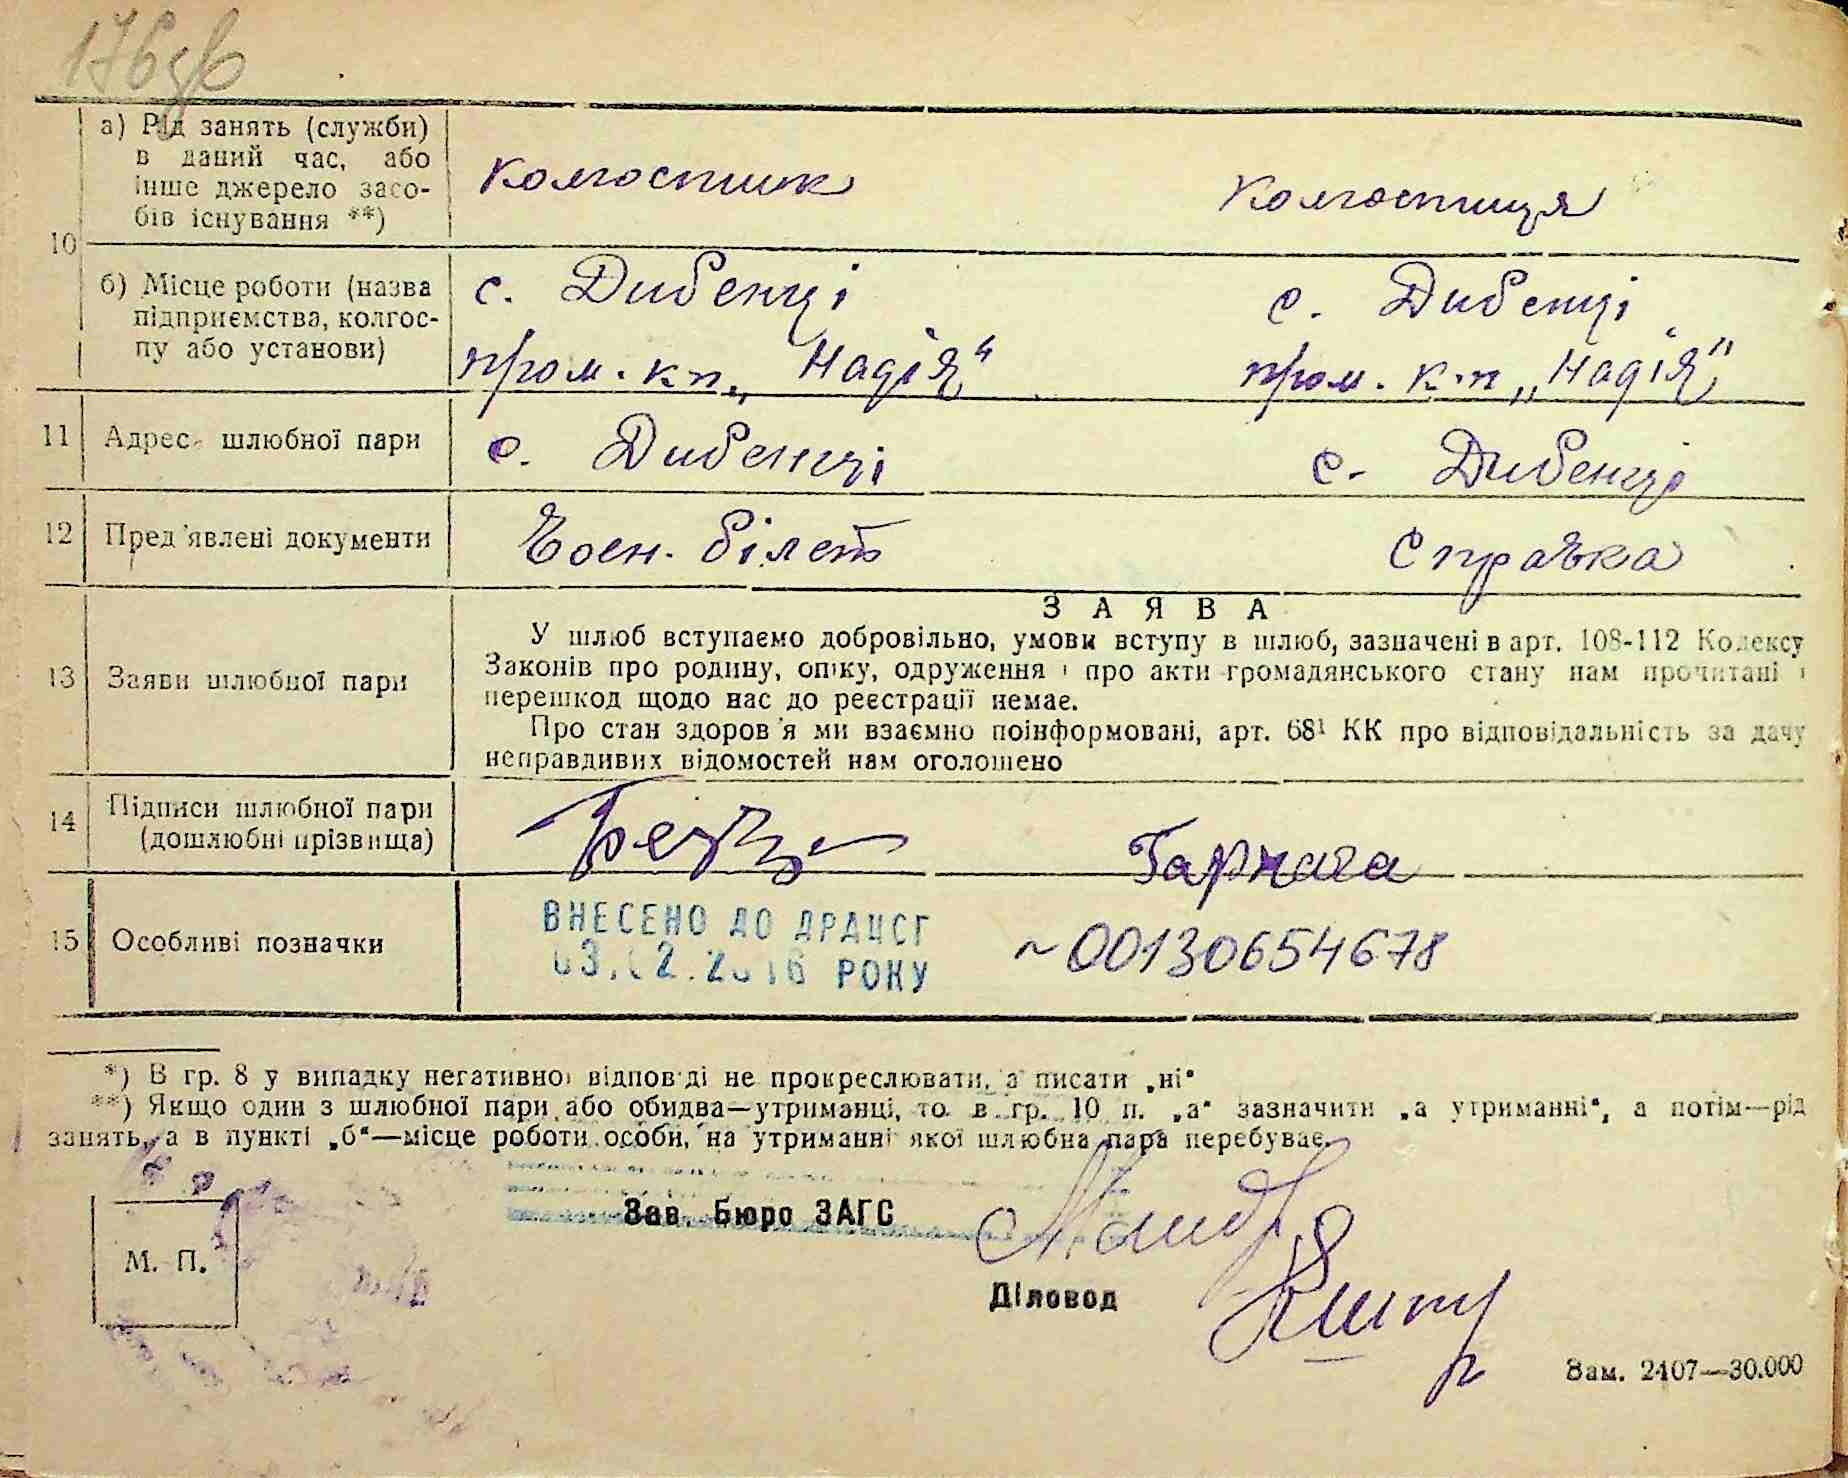 176зв
а) Рід занять (служби)
в даний час, або
інше джерело засо-
бів існування **)
колгоспник
колгоспниця
10
б) Місце роботи (назва
підприємства, колгос-
пу або установи)
с. Дибенці
с. Дибенці
пром. кп. „Надія“
пром. к-п „Надія“
11 Адрес шлюбної пари
с. Дибенці
с. Дибенці
12 Пред'явлені документи
Воен. білет
Справка
13 Заяви шлюбної пари
ЗАЯВА
У шлюб вступаємо добровільно, умови вступу в шлюб, зазначені в арт. 108-112 Кодексу
Законів про родину, опіку, одруження і про акти громадянського стану нам прочитані і
перешкод щодо нас до реєстрації немає.
Про стан здоров'я ми взаємно поінформовані, арт. 68¹ КК про відповідальність за дачу
неправдивих відомостей нам оголошено
14 Підписи шлюбної пари
(дошлюбні прізвища)
Гарнага
15 Особливі позначки
ВНЕСЕНО ДО ДРАЦСГ
03.02.2016 РОКУ
~00130654678
*) В гр. 8 у випадку негативної відповіді не прокреслювати, а писати „ні“
**) Якщо один з шлюбної пари або обидва—утриманці, то в гр. 10 п. „а“ зазначити „а утриманні“, а потім—рід
занять, а в пункті „б“—місце роботи особи, на утриманні якої шлюбна пара перебуває.
Зав. Бюро ЗАГС
М. П.
Діловод
Зам. 2407—30.000